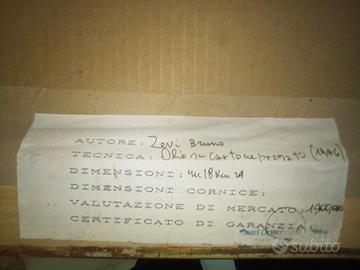 AUTORE: Zevi Bruno
TECNICA: Olio su cartone pressato (1946)
DIMENSIONI: cm 18 x cm 24
DIMENSIONI CORNICE:
VALUTAZIONE DI MERCATO:
CERTIFICATO DI GARANZIA
subito